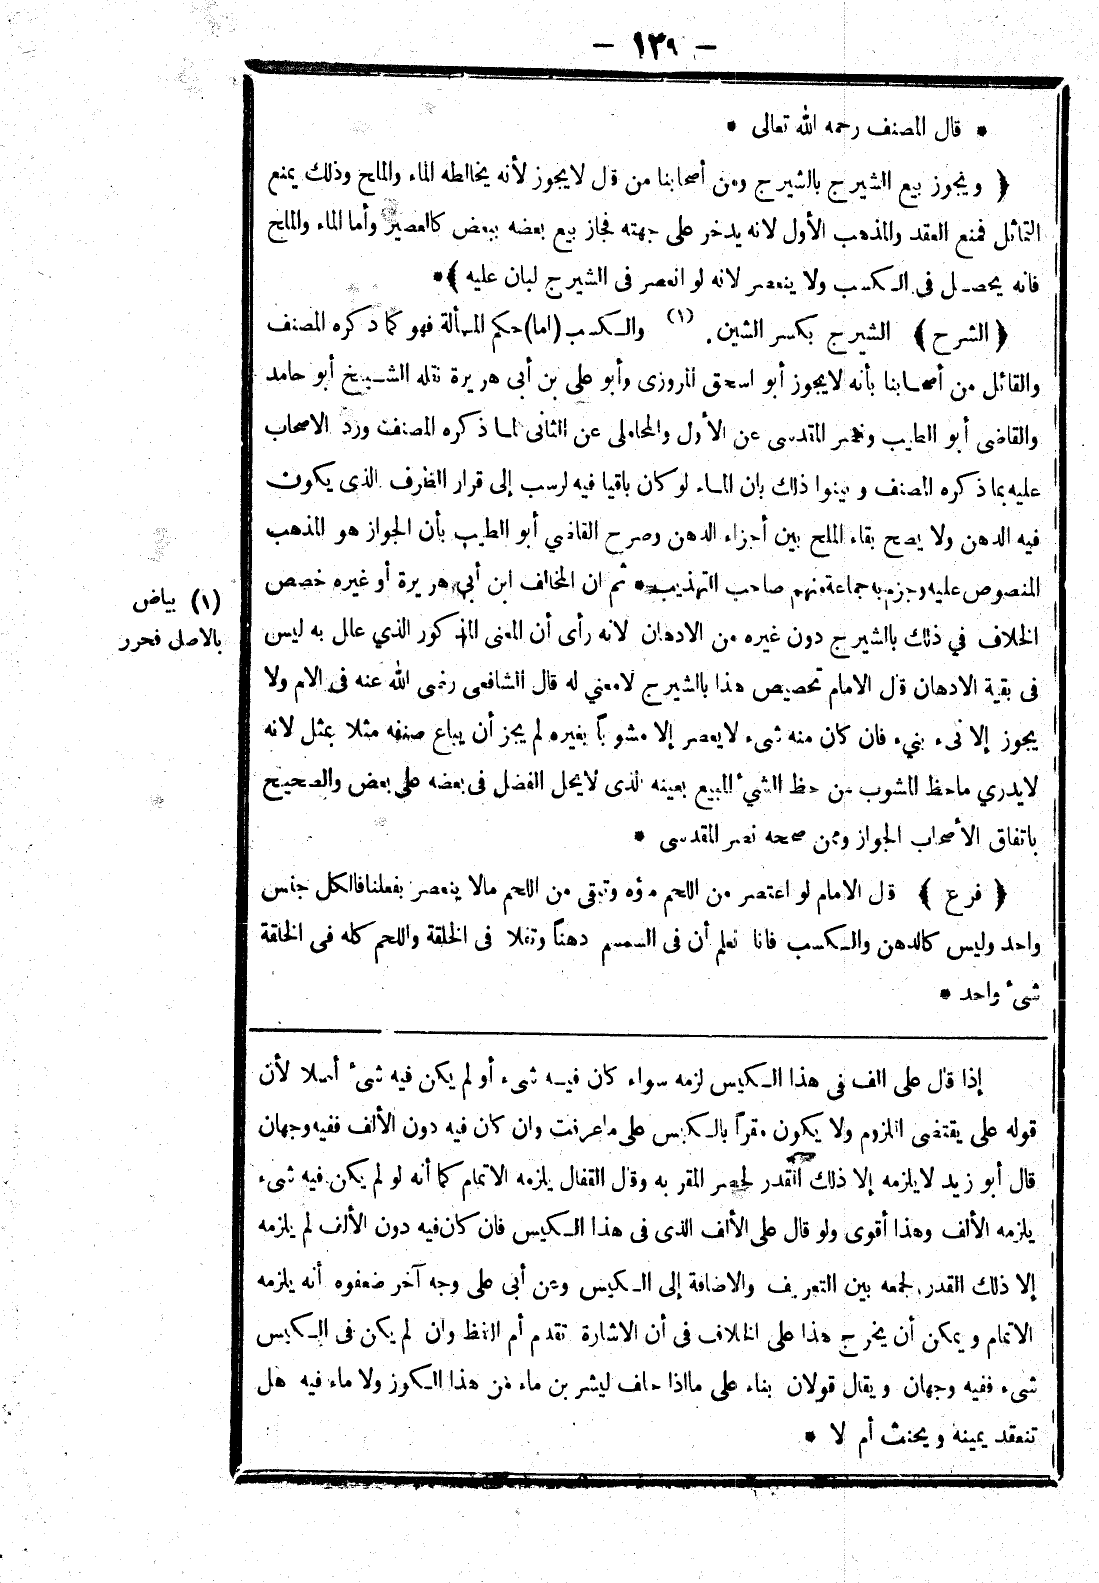 – ١٣٩ –
* قال المصنف رحمه الله تعالى *
﴿ ويجوز بيع الشيرج بالشيرج ومن أصحابنا من قال لايجوز لأنه يخالطه الماء والملح وذلك يمنع
التماثل فمنع العقد والمذهب الأول لانه يدخر على جهته فجاز بيع بعضه ببعض كالعصير وأما الماء والملح
فانه يحصل فى الكسب ولا ينعصر لانه لو انعصر فى الشيرج لبان عليه ﴾ *
﴿ الشرح ﴾ الشيرج بكسر الشين . (١) والكسب (اما) حكم المسألة فهو كما ذكره المصنف
والقائل من أصحابنا بأنه لايجوز أبو اسحق المروزى وأبو على بن أبى هريرة نقله الشيخ أبو حامد
والقاضى أبو الطيب ونصر المقدسى عن الأول والمحاملى عن الثانى لما ذكره المصنف ورد الاصحاب
عليه بما ذكره المصنف وبينوا ذلك بان الماء لو كان باقيا فيه لرسب إلى قرار الظرف الذى يكون
فيه الدهن ولا يصح بقاء الملح بين أجزاء الدهن وصرح القاضي أبو الطيب بأن الجواز هو المذهب
المنصوص عليه وجزم به جماعة منهم صاحب التهذيب * ثم ان المخالف ابن أبي هريرة أو غيره خصص
الخلاف في ذلك بالشيرج دون غيره من الادهان لانه رأى أن المعنى المذكور الذي علل به ليس
فى بقية الادهان قال الامام تخصيص هذا بالشيرج لامعني له قال الشافعى رضى الله عنه فى الام ولا
يجوز إلا نىء بنيء فان كان منه شىء لايعصر إلا مشوباً بغيره لم يجز أن يباع صنفه مثلا بمثل لانه
لايدري ماحظ المشوب من حظ الشيء المبيع بعينه الذى لايحل الفضل فى بعضه على بعض والصحيح
باتفاق الأصحاب الجواز وممن صححه نصر المقدسى *
﴿ فرع ﴾ قال الامام لو اعتصر من اللحم ماؤه وتبقى من اللحم مالا ينعصر بفعلنا فالكل جنس
واحد وليس كالدهن والكسب فانا نعلم أن فى السمسم دهناً وثفلا فى الخلقة واللحم كله فى الخلقة
شىء واحد *
إذا قال على الف فى هذا الكيس لزمه سواء كان فيه شىء أو لم يكن فيه شىء أصلا لأن
قوله على يقتضى اللزوم ولا يكون مقراً بالكيس على ماعرفت وان كان فيه دون الألف ففيه وجهان
قال أبو زيد لايلزمه إلا ذلك القدر لحصر المقر به وقال القفال يلزمه الاتمام كما أنه لو لم يكن فيه شىء
يلزمه الألف وهذا أقوى ولو قال على الألف الذى فى هذا الكيس فان كان فيه دون الألف لم يلزمه
إلا ذلك القدر لجمعه بين التعريف والاضافة إلى الكيس وعن أبى على وجه آخر ضعفوه أنه يلزمه
الاتمام ويمكن أن يخرج هذا على الخلاف فى أن الاشارة تقدم أم اللفظ وان لم يكن فى الكيس
شىء ففيه وجهان ويقال قولان بناء على مااذا حلف ليشربن ماء من هذا الكوز ولا ماء فيه هل
تنعقد يمينه ويحنث أم لا *
(١) بياض
بالاصل فحرر